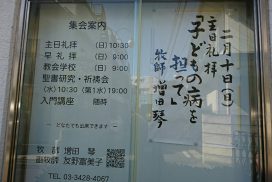 二月十日(日)
主日礼拝
「子どもの病を
担って」
牧師 増田琴
集会案内
主日礼拝 (日) 10:30
早礼拝 (日) 9:00
教会学校 (日) 9:00
聖書研究・祈祷会
(水) 10:30 (第1水) 19:00
入門講座 随時
どなたでも出席できます
牧師 増田 琴
副牧師 友野富美子
TEL 03-3428-4067